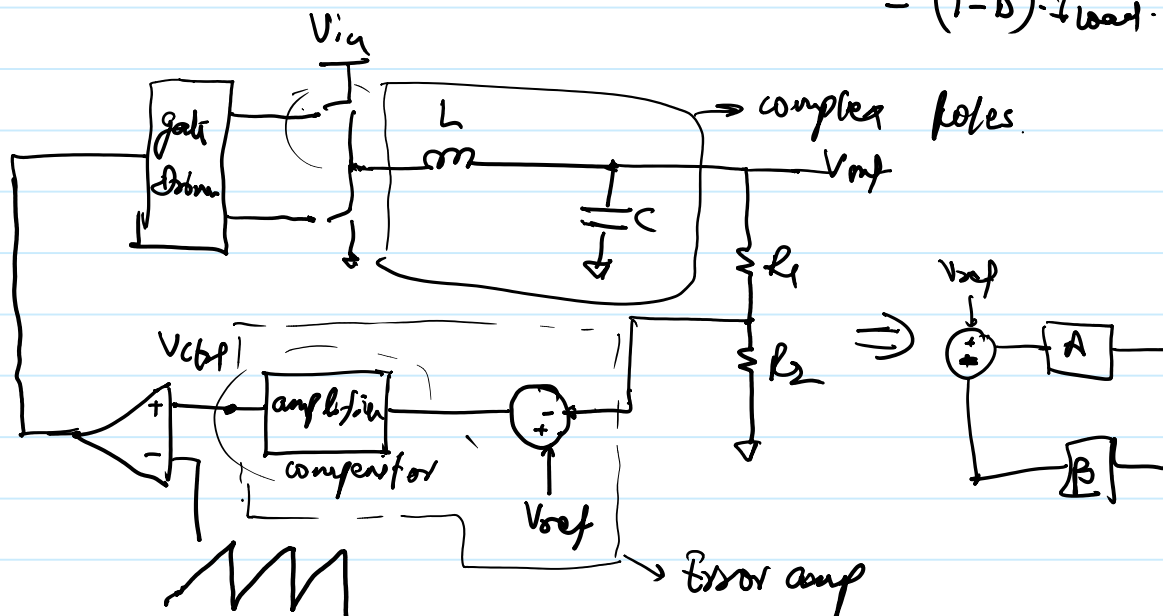 = (1-D) · I load.
Vin
gate
Driver
L
complex Poles.
Vout
C
R1
Vref
Vctrl
R2
A
+
amplifier
-
+
-
compensator
β
Vref
Error amp